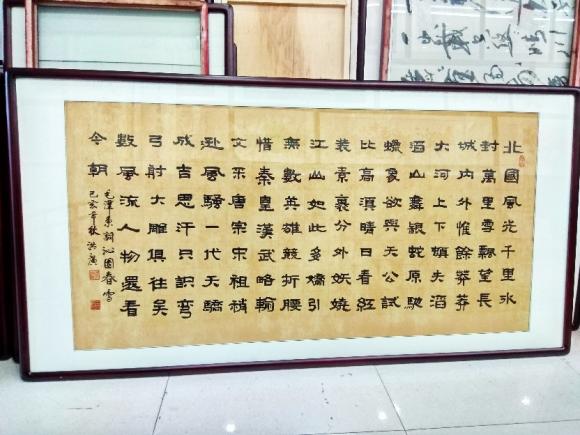 北國風光千里氷
封萬里雪飄望長
城内外惟餘莽莽
大河上下頓失滔
滔山舞銀蛇原馳
蠟象欲與天公試
比高須晴日看紅
裝素裹分外妖嬈
江山如此多嬌引
無數英雄競折腰
惜秦皇漢武略輸
文采唐宗宋祖稍
遜風騷一代天驕
成吉思汗只識彎
弓射大雕俱往矣
數風流人物還看
今朝
毛澤東詞沁園春雪
己亥年秋洪